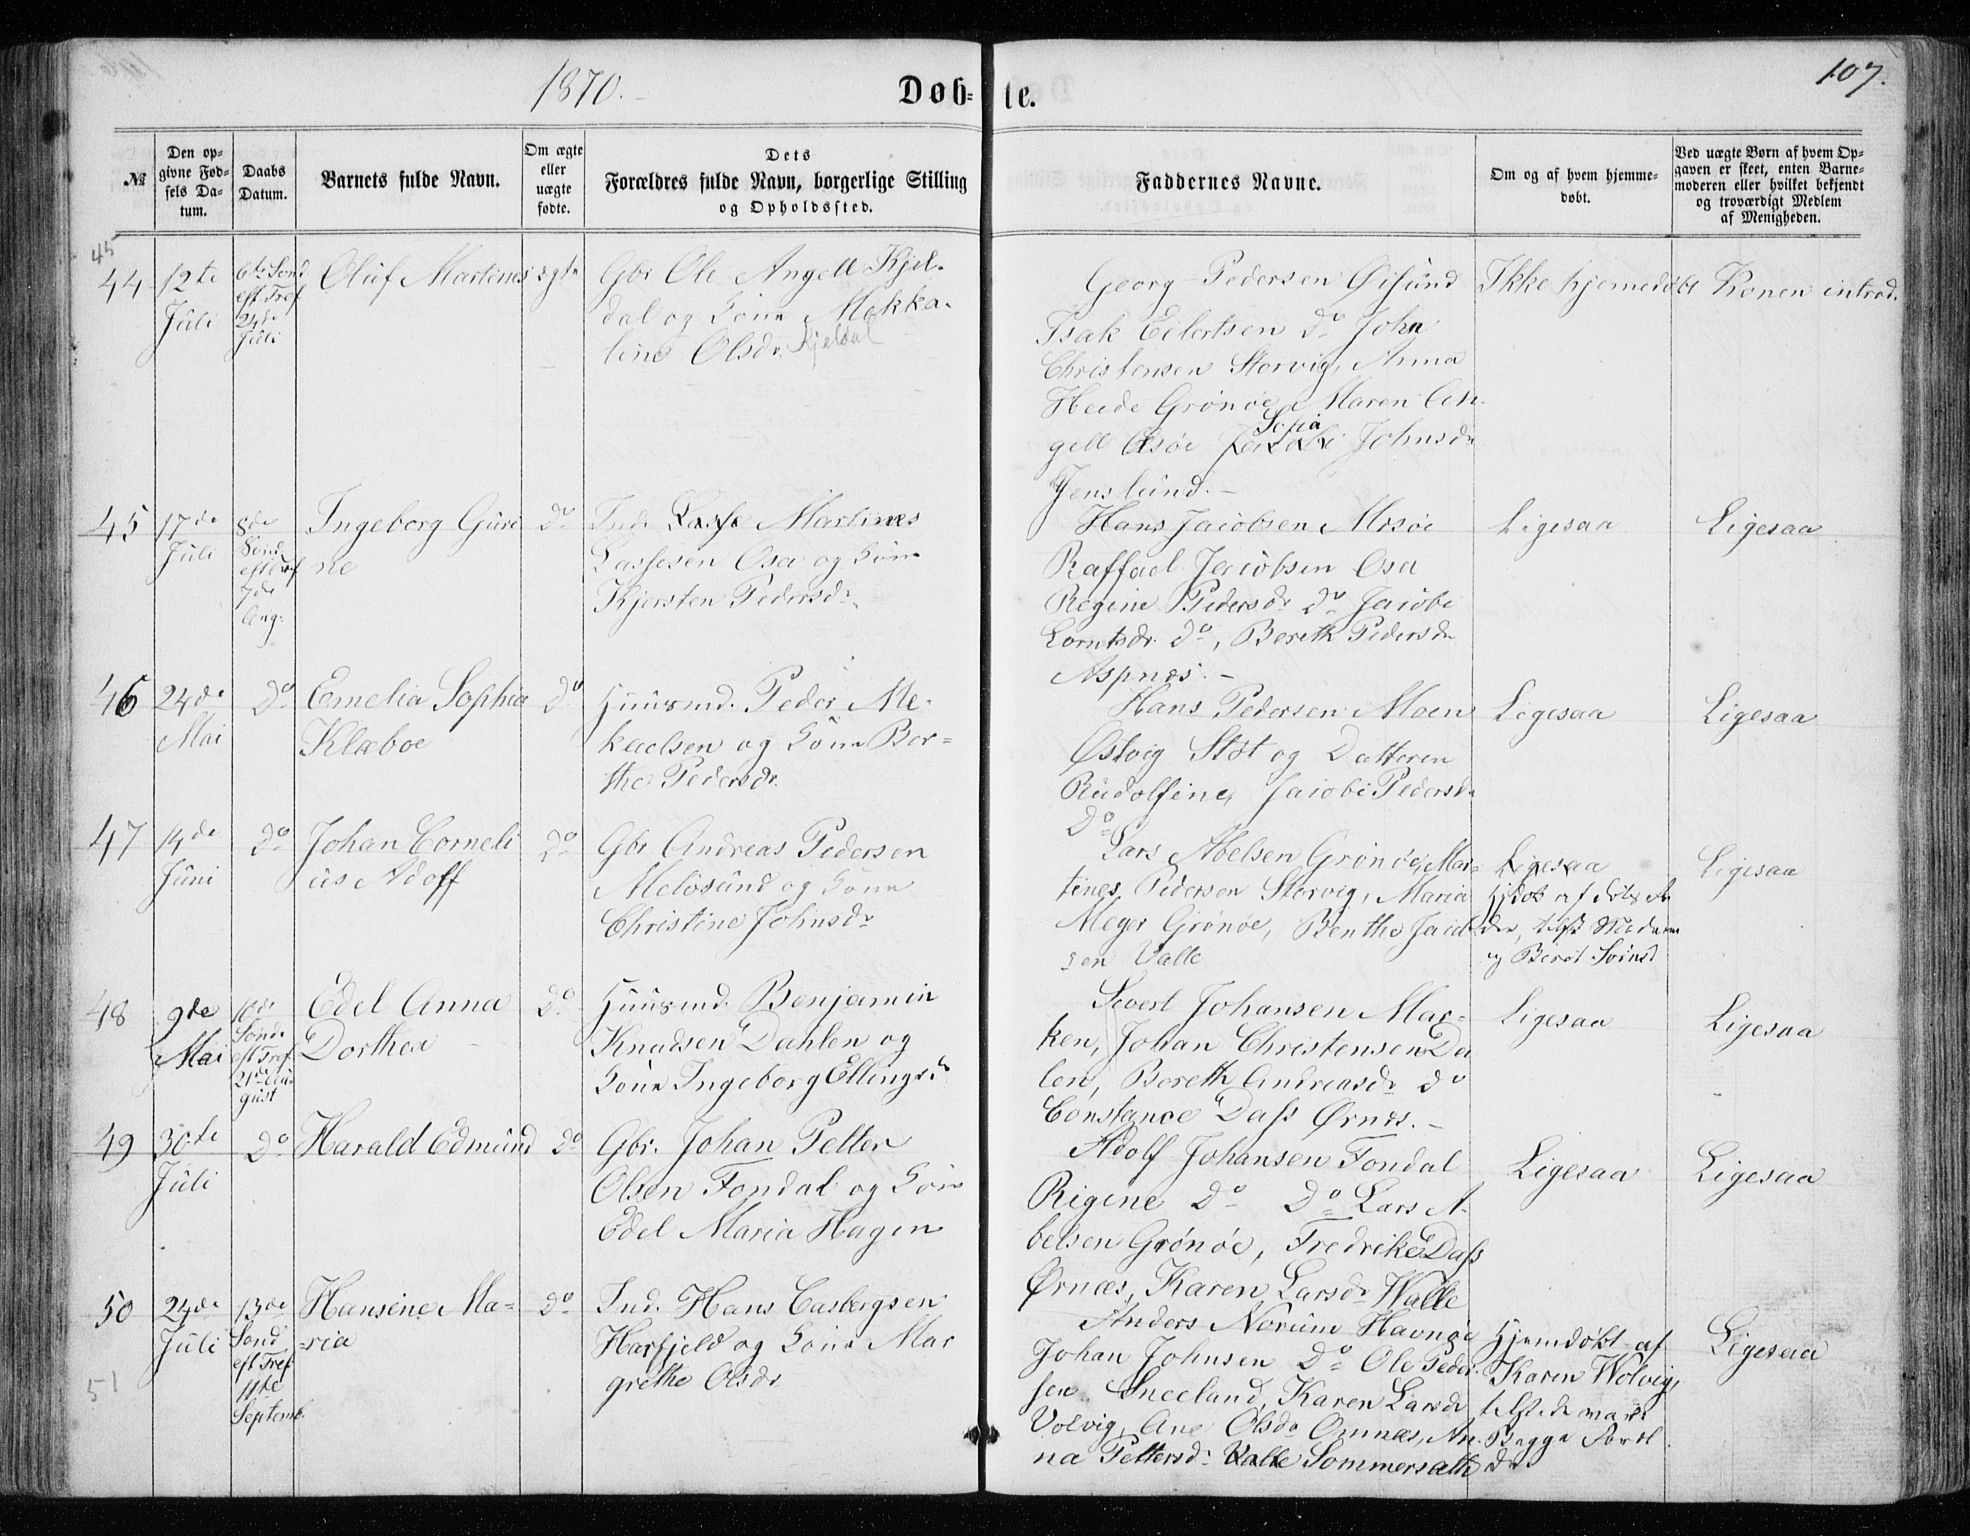 1870.
Døb-
te.
107.
№
Den op-
givne Fød-
sels Da-
tum.
Daabs
Datum.
Barnets fulde Navn.
Om ægte
eller
uægte
fødte.
Dets
Forældres fulde Navn, borgerlige Stilling
og Opholdssted.
Faddernes Navne.
Om og af hvem hjemme-
døbt.
Ved uægte Børn af hvem Op-
gaven er skeet, enten Barne-
moderen eller hvilket bekjendt
og troværdigt Medlem
af Menigheden.
45
44
12te
Juli
6te Sønd
eft Tref
24de
Juli
Oluf Martines
ægte
Gbr Ole Angell Kjel-
dal og Kone Mekka-
line Olsdr. Kjeldal
Georg Pedersen Øisund
Isak Eilertsen Do John
Christensen Storvig, Anna
Heide Grønøe, Maren An-
gell Osøe Sofia Johnsdr
Jenslund.-
Ikke hjemedøbt
Konen introd.
45
17de
Juli
8de
Sønd
eft Tref
7de
Aug.
Ingeborg Guri
ne
Do
Ind. Martines
Lassesen Osa og Kone
Kjersten Pedersdr.
Hans Jacobsen Mosøe
Raffael Jacobsen Osa
Regine Pedersdr Do Jacobe
Lorntsdr. Do, Bereth Pedersdr
Aspnæs.-
Ligesaa
Ligesaa
46
24de
Mai
Do
Emelia Sophia
Klæboe
Do
Huusmd. Peder Me-
kaelsen og Kone Ber-
the Pedersdr.
Hans Pedersen Moen
Østvig Støt og Datteren
Rudolfine, Jacobe Pedersdr
Do
Ligesaa
Ligesaa
47
14de
Juni
Do
Johan Corneli
us Adoff
Do
Gbr Andreas Pedersen
Meløsund og Kone
Christine Johnsdr
Lars Abelsen Grønøe, Mar-
tines Pedersen Storvig, Maria
Meyer Grønøe, Benthe Jacob
sen Valle
Ligesaa
Hjdøb af
og Beret
Ligesaa
48
9de
Mai
10de
Sønd.
eft Tref.
21de Au-
gust
Edel Anna
Dorthea
Do
Huusmd. Benjamin
Knudsen Dahlen og
Kone Ingeborg Ellingsdr
Sivert Johansen Mar-
ken, Johan Christensen Da
len, Bereth Andreasdr Do
Constance Dass Ørnes.-
Ligesaa
Ligesaa
49
30te
Juli
Do
Harald Edmund
Do
Gbr. Johan Petter
Olsen Fondal og Kone
Edel Maria Hagen
Adolf Johansen Fondal
Rigine Do Do Lars A-
belsen Grønøe, Fredrike Dass
Ørnæs, Karen Larsdr Walle
Ligesaa
Ligesaa
50
24de
Juli
13de
Sønd
eft Tref
11te
Septemb.
Hansine Ma-
ria
Do
Ind. Hans Casbergsen
Harfjeld og Kone Mar
grethe Olsdr
Anders Norum Havnøe
Johan Johnsen Do Ole Peder-
sen Sneeland, Karen Larsdr
Volvig, Ane Olsdr Omnæs, An-
na Pettersdr. Valle Sommersæth
Hjemdøbt af
Karen Wolvig,
tilstede vare
Begge Foræl
dr.
Ligesaa
51